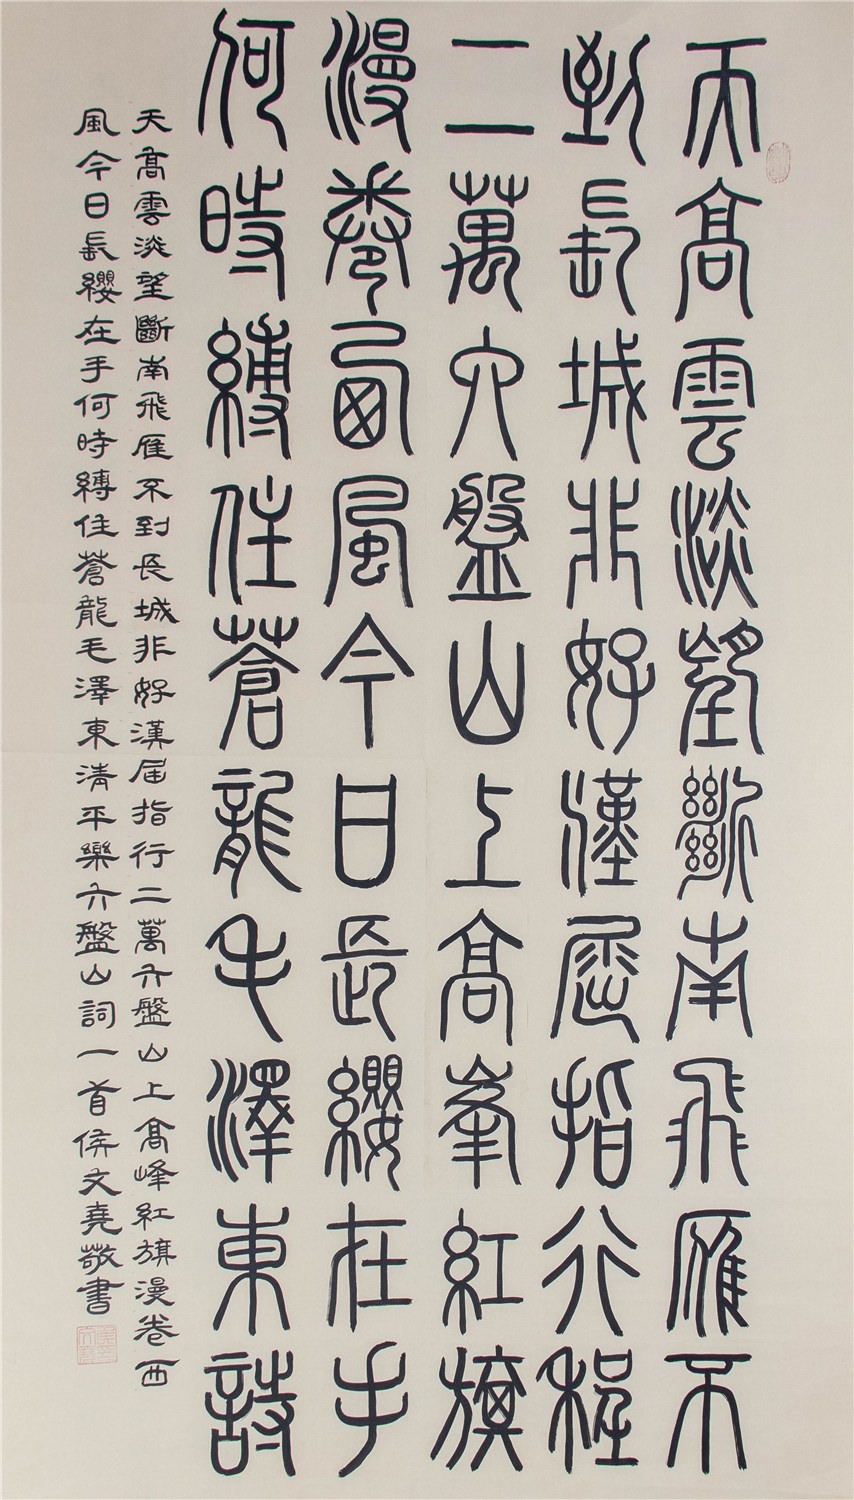 天高雲淡望斷南飛雁不
到長城非好漢屈指行程
二萬六盤山上高峯紅旗
漫卷西風今日長纓在手
何時縛住蒼龍毛澤東詩
天高雲淡望斷南飛雁不到長城非好漢屈指行二萬六盤山上高峰紅旗漫卷西
風今日長纓在手何時縛住蒼龍毛澤東清平樂六盤山詞一首侯文堯敬書